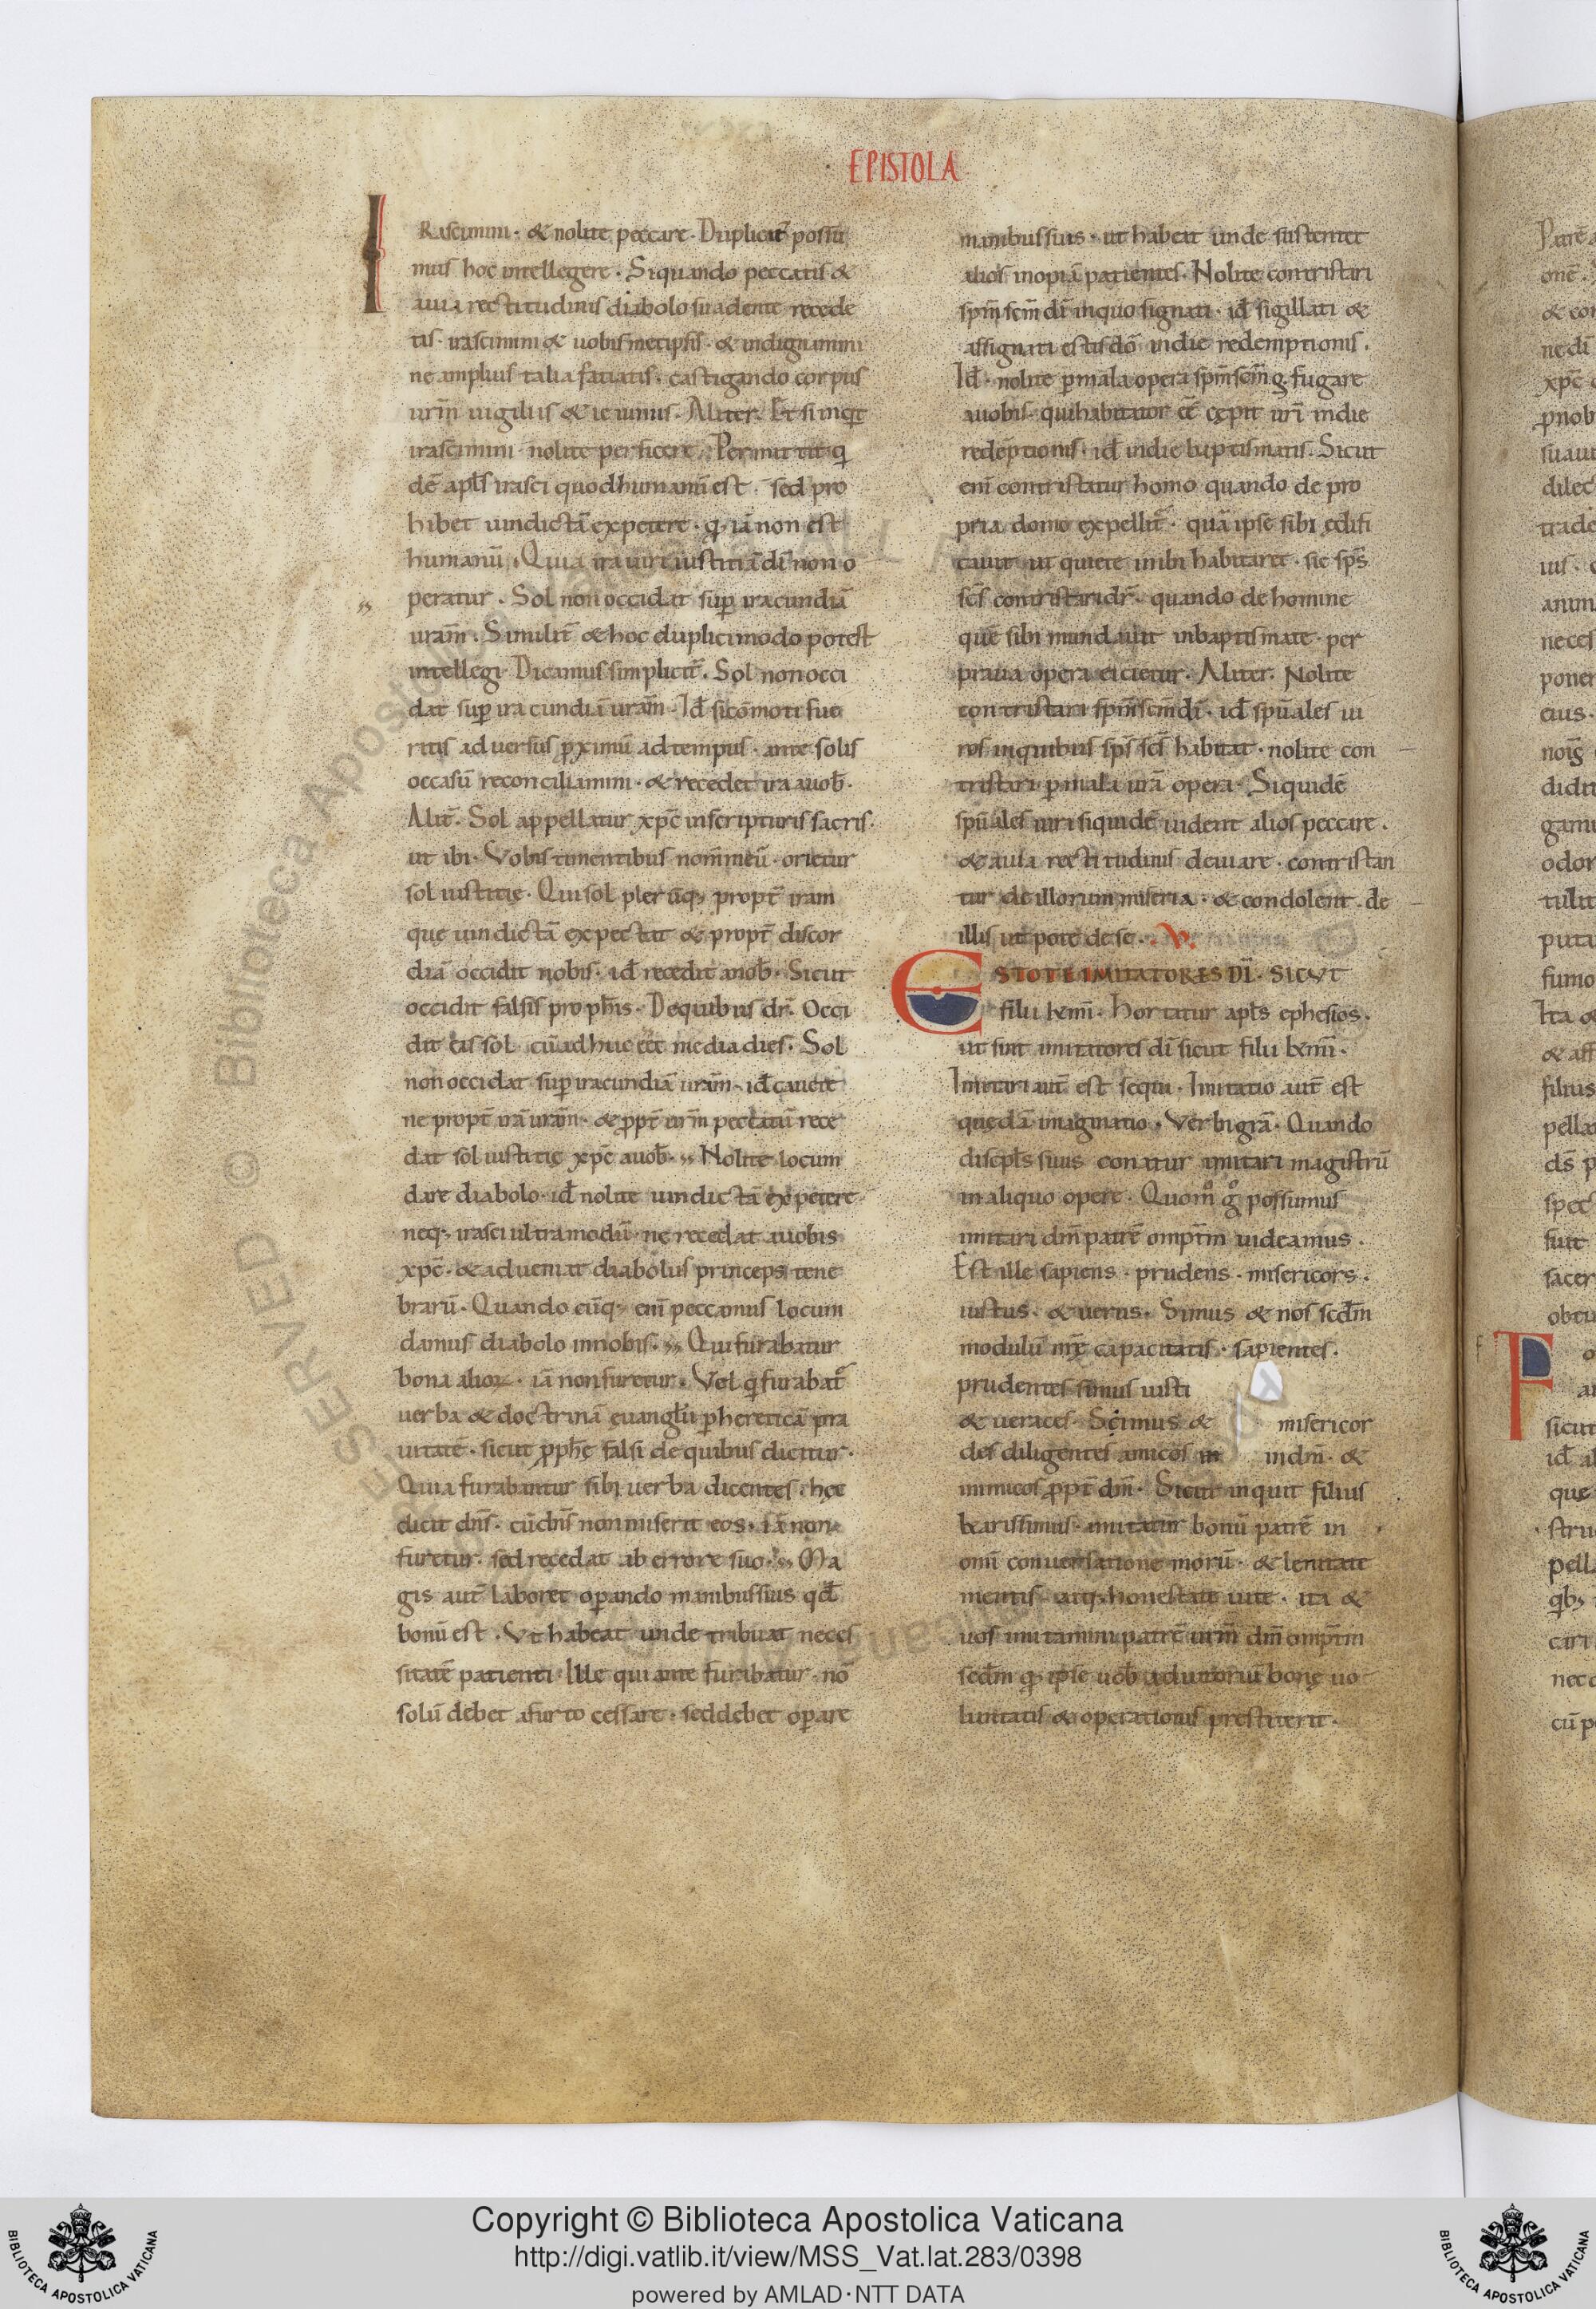 EPISTOLA
IRascimini· & nolite peccare· Duplicit̄ possu
mus hoc intellegere· Si quando peccatis &
a uia rectitudinis diabolo suadente recede
tis· irascimini & uobismetipsis· & indignamini
ne amplius talia faciatis· castigando corpus
ur̄m uigiliis & ieiuniis· Aliter· Et si inq̄t
irascimini nolite perficere· Permittit q̇
dē apl̄s irasci quod humanū est· sed pro
hibet uindictā expetere· q̇ iā non est
humanū· Quia ira uiri iustitiā dī non o
peratur· Sol non occidat sup̄ iracundiā
uram̄· Similit̄ & hoc duplici modo potest
intellegi· Dicamus simplicit̄· Sol non occi
dat sup̄ iracundiā uram̄· Id̄ si cōmoti fue
ritis aduersus p̄ximū ad tempus· ante solis
occasū reconciliamini· & recedet ira a uob̄·
Alit̄· Sol appellatur xp̄c in scripturis sacris·
ut ibi· Vobis timentibus nom̄ meū· orietur
sol iustitię· Qui sol plerūq; propt̄ iram
que uindictā expectat & propt̄ discor
diā occidit nobis· id̄ recedit a nob̄· Sicut
occidit falsis proph̄is· De quibus dr̄· Occi
dit eis sol cū adhuc eēt media dies· Sol
non occidat sup̄ iracundiā uram̄· id̄ cauete
ne propt̄ irā uram̄· & ppt̄ ur̄m peccatū rece
dat sol iustitię xp̄c a uob̄· Nolite locum
dare diabolo· id̄ nolite uindictā expetere
neq; irasci ultra modū· ne recedat a uobis
xp̄c· & adueniat diabolus princeps tene
brarū· Quando cūq; eni peccamus locum
damus diabolo in nobis· Qui furabatur
bona alioꝝ· iā non furetur· Vel q̇ furabat̄
uerba & doctrinā euangl̄ii p̄ hereticā pra
uitatē· sicut pph̄ę falsi de quibus dicitur·
Quia furabantur sibi uerba dicentes· hęc
dicit dn̄s· cū dn̄s non miserit eos· iā non
furetur· sed recedat ab errore suo· Ma
gis aut̄ laboret opando manibus suis qd̄
bonū est· Vt habeat unde tribuat neces
sitatē patienti· Ille qui ante furabatur· nō
solū debet a furto cessare· sed debet opare
manibus suis· ut habeat unde sustentet
alios inopiā patientes· Nolite contristari
sp̄m sc̄m dī in quo signati· id̄ sigillati &
assignati estis dō in die redemptionis·
Id̄· nolite p mala opera sp̄m sc̄m g̣ fugare
a uobis· qui habitator eē cępit ur̄i in die
redēptionis· id̄ in die baptismatis· Sicut
eni contristatur homo quando de pro
pria domo expellit̄· quā ipse sibi ędifi
cauit ut quiete inibi habitaret· sic sp̄s
sc̄s contristari dr̄· quando de homine
quē sibi mundauit in baptismate· per
praua opera eicietur· Aliter· Nolite
contristari sp̄m sc̄m dī· id̄ sp̄uales ui
ros in quibus sp̄s sc̄s habitat· nolite con
tristari p mala ur̄a opera· Siquidē
sp̄uales uiri siquidē uident alios peccare·
& a uia rectitudinis deuiare· contristan
tur de illorum miseria· & condolent· de
illis ut pote de se· V·
ESTOTE IMITATORES DI· SICVT
filii k̄mi· Hortatur apl̄s ephesios·
ut sint imitatores dī sicut filii k̄mi·
Imitari aut̄ est sequi· Imitatio aut̄ est
quędā imaginatio· Verbi grā· Quando
discipl̄s suus conatur imitari magistrū
in aliquo opere· Quom̊ g̊ possumus
imitari dm̄ patrē omp̄tm uideamus·
Est ille sapiens· prudens· misericors·
iustus· & uerus· Simus & nos scd̄m
modulū nr̄ę capacitatis· sapientes·
prudentes simus iusti
& ueraces· Simus & misericor
des diligentes amicos in dm̄· &
inimicos ppt̄ dm̄· Sicut inquit filius
k̄arissimus· imitatur bonū patrē in
omi conuersatione morū· & lenitate
mentis atq; honestate uite· ita &
uos imitamini patrē ur̄m dm̄ omp̄tm
scd̄m q̇ ipse uob̄ adiutoriū bonę uo
luntatis & operationis prestiterit·
Copyright © Biblioteca Apostolica Vaticana
http://digi.vatlib.it/view/MSS_Vat.lat.283/0398
powered by AMLAD·NTT DATA
BIBLIOTECA APOSTOLICA VATICANA
BIBLIOTECA APOSTOLICA VATICANA